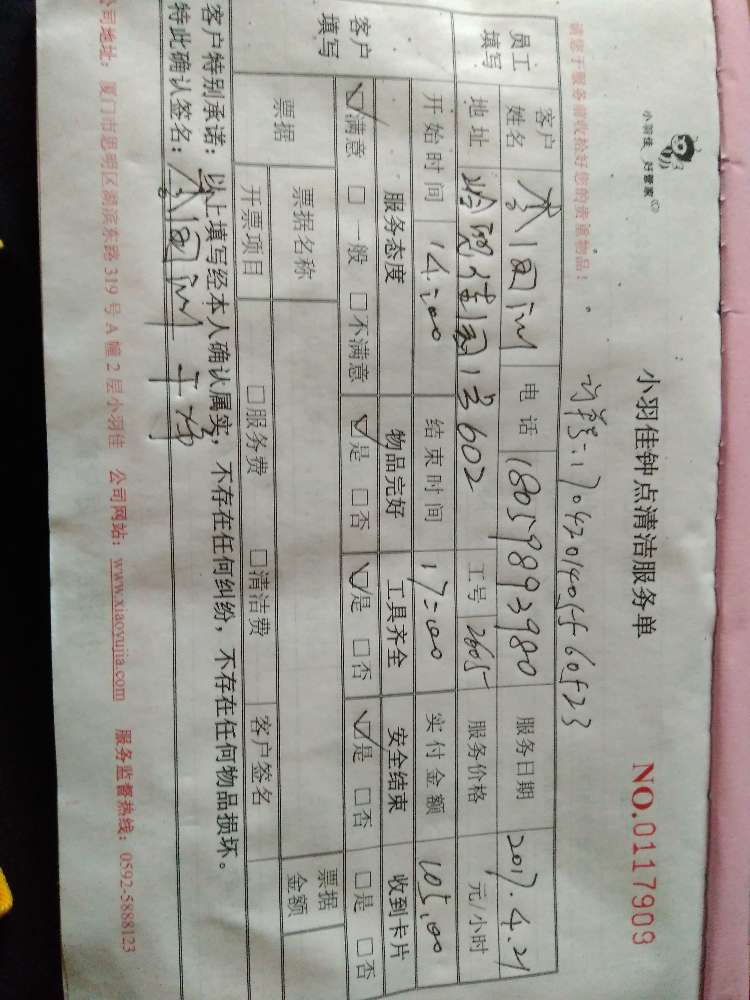 小羽佳 好管家
小羽佳钟点清洁服务单
NO.0117909
请您于服务前收拾好您的贵重物品!
员工填写 客户姓名 电话 18059893980 服务日期 2017.4.21
地址 佳园 602 工号 2605 服务价格 元/小时
客户填写 开始时间 14:00 结束时间 17:00 实付金额 105.00
服务态度 物品完好 工具齐全 安全结束 收到卡片
☑满意 □一般 □不满意 ☑是 □否 ☑是 □否 ☑是 □否 □是 □否
票据 票据名称 票据金额
开票项目 □服务费 □清洁费 客户签名
客户特别承诺:以上填写经本人确认属实,不存在任何纠纷,不存在任何物品损坏。
特此确认签名: 干净
公司地址:厦门市思明区湖滨东路319号A幢2层小羽佳 公司网站:www.xiaoyujia.com 服务监督热线:0592-5888123